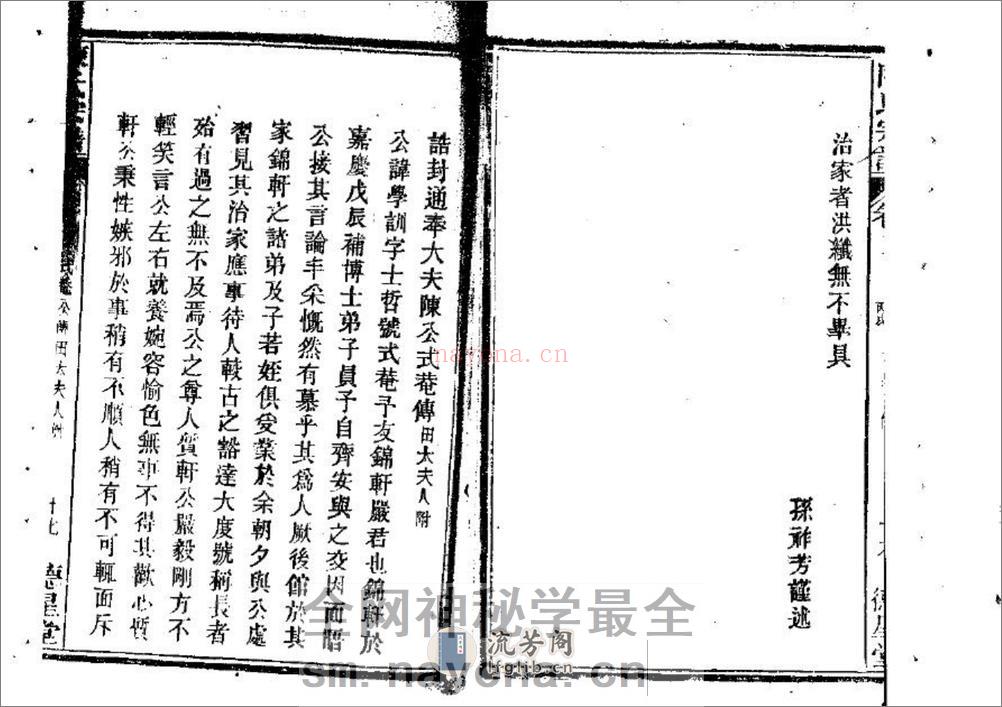 治家者洪纖無不畢具
孫祚芳謹述
誥封通奉大夫陳公式菴傳田太夫人附
公諱學訓字士哲號式菴予友錦軒嚴君也錦軒於
嘉慶戊辰補博士弟子員予自齊安與之交因而晤
公接其言論丰采慨然有慕乎其為人厥後館於其
家錦軒之諸弟及子若姪俱受業於余朝夕與公處
習見其治家應事待人較古之豁達大度號稱長者
殆有過之無不及焉公之尊人質軒公嚴毅剛方不
輕笑言公左右就養婉容愉色無事不得其歡心質
軒公秉性嫉邪於事稍有不順人稍有不可輒面斥
式菴公傳田太夫人附
十七
德星堂
nayona.cn
全网神秘学最全
流芳阁
lfglib.com
sm.nayona.cn